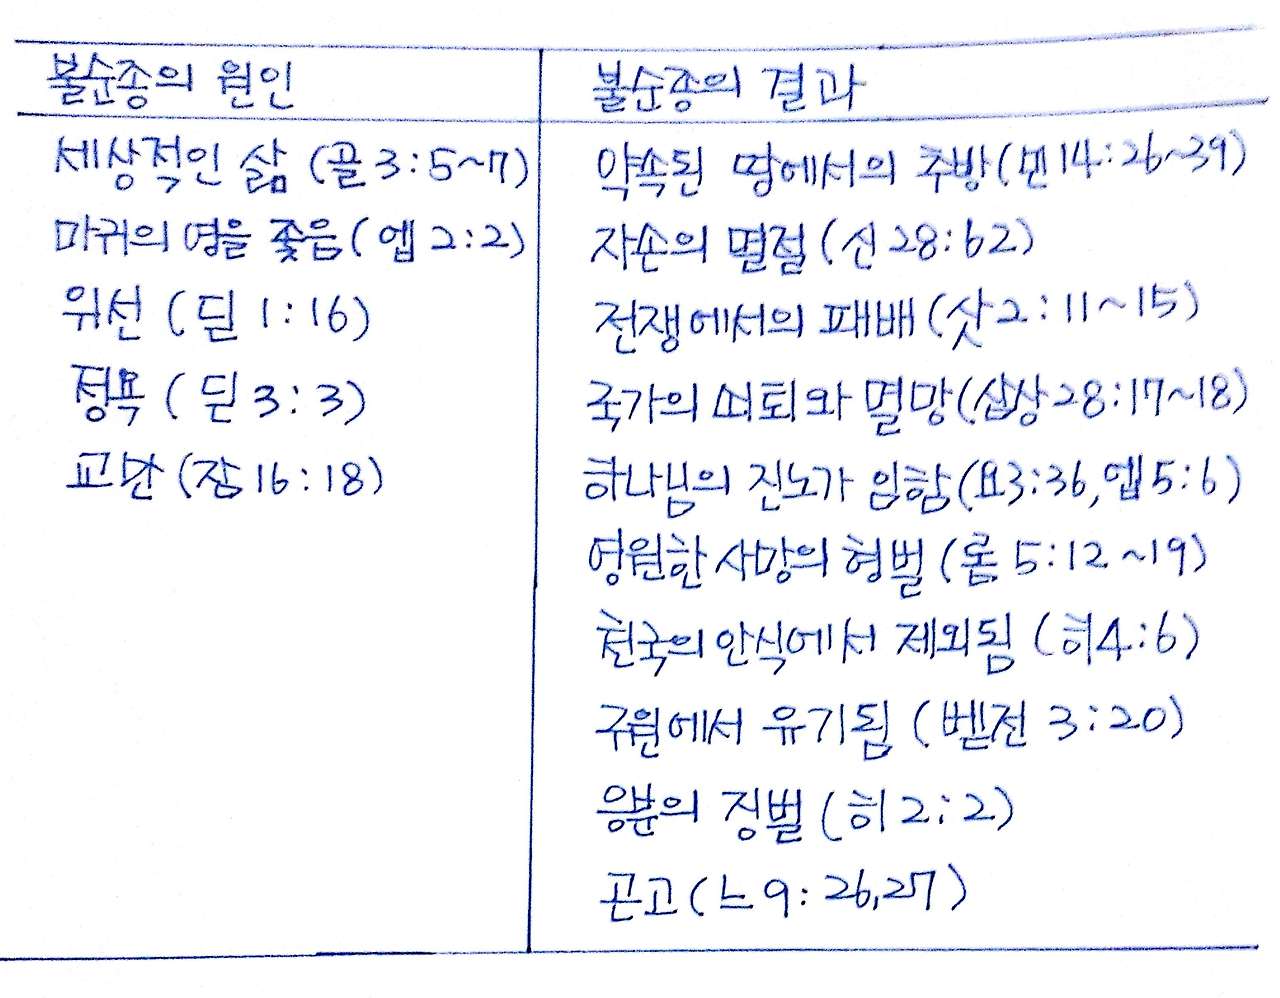 불순종의 원인
세상적인 삶 (골 3:5~7)
마귀의 영을 좇음 (엡 2:2)
위선 (딛 1:16)
정욕 (딛 3:3)
교만 (잠 16:18)
불순종의 결과
약속된 땅에서의 추방 (민 14:26~39)
자손의 멸절 (신 28:62)
전쟁에서의 패배 (삿 2:11~15)
국가의 쇠퇴와 멸망 (삼상 28:17~18)
하나님의 진노가 임함 (요 3:36, 엡 5:6)
영원한 사망의 형벌 (롬 5:12~19)
천국의 안식에서 제외됨 (히 4:6)
구원에서 유기됨 (벧전 3:20)
응분의 징벌 (히 2:2)
곤고 (느 9:26,27)